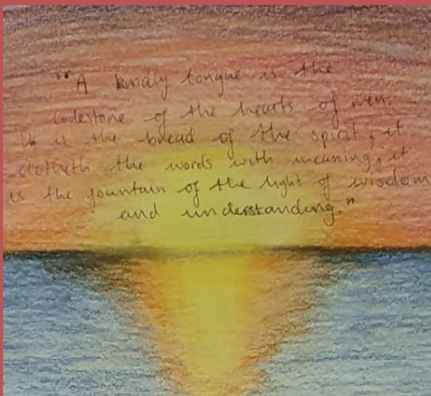 "A kindly tongue is the
lodestone of the hearts of men.
It is the bread of the spirit, it
clotheth the words with meaning, it
is the fountain of the light of wisdom
and understanding."